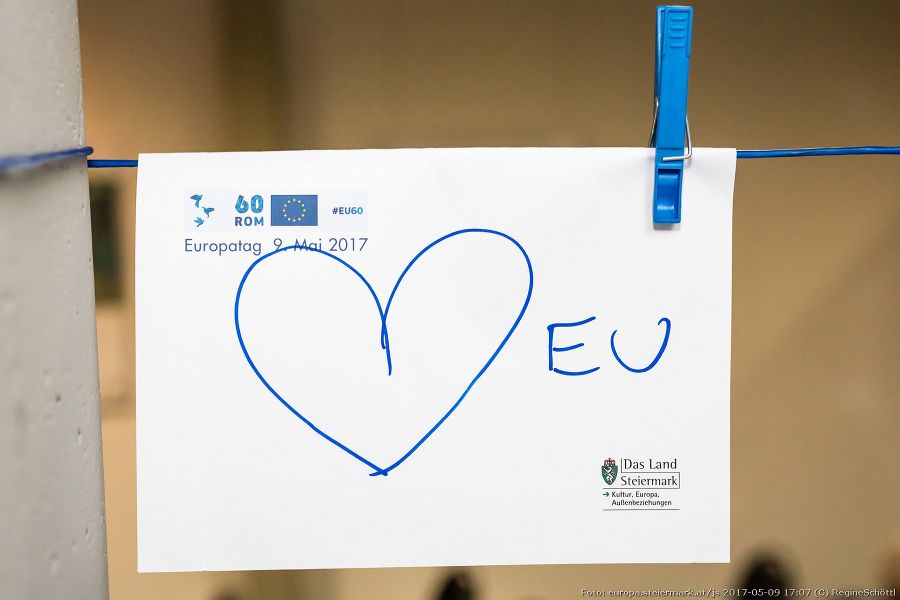 60
ROM
#EU60
Europatag 9. Mai 2017
EU
Das Land
Steiermark
→ Kultur, Europa,
Außenbeziehungen
Foto: europa.steiermark.at/js 2017-05-09 17:07 (C) RegineSchöttl